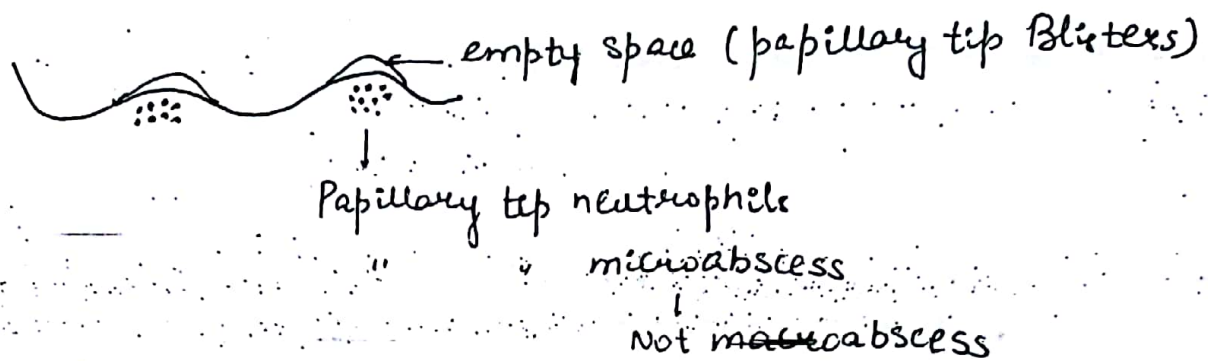 empty space (papillary tip Blisters)
Papillary tip neutrophils
" " microabscess
Not macroabscess